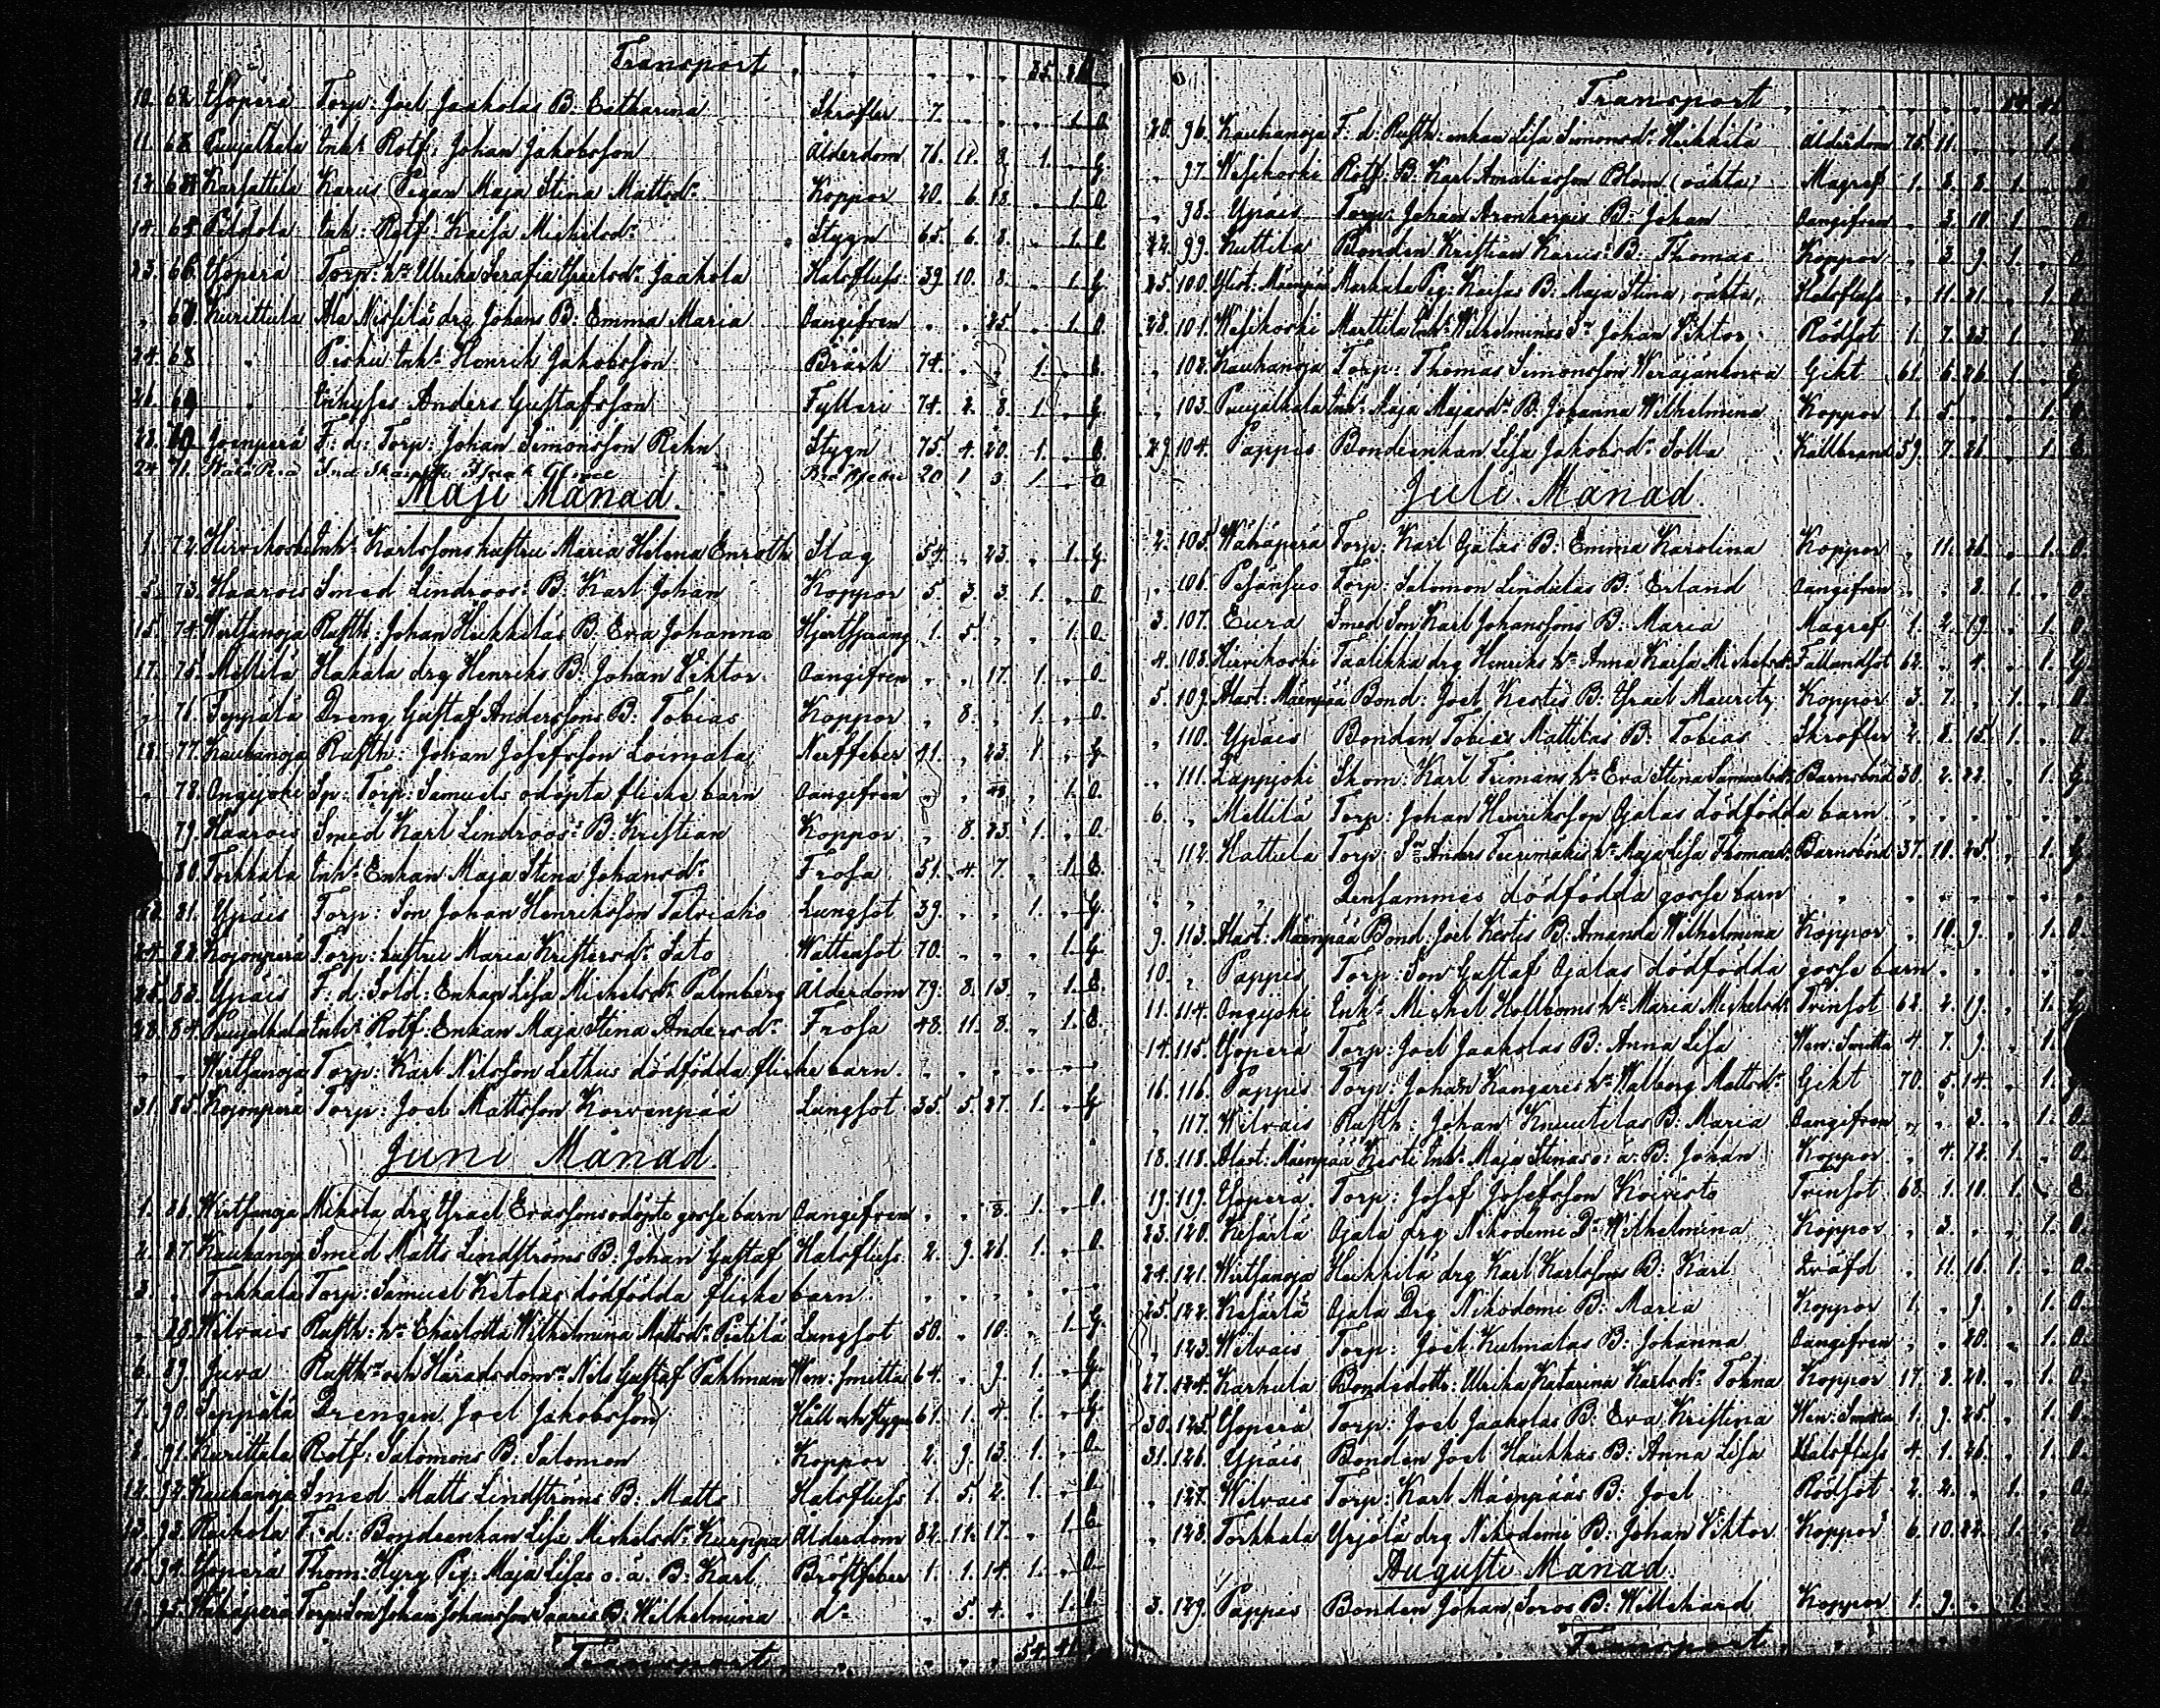 Transport 35.
10. 62. Yoperä Torp: Joel Jaakolas B: Catharina Skrofler 7. 1. O.
11. 63. Puujalkala Inh: Rotf: Johan Jakobsson Ålderdom 76. 11. 9. 1. G.
12. 64. Karsattila Karus Pigan Maja Stina Mattsdr. Koppor 20. 6. 18. 1. O.
14. 65. Peldola Inh: Rotf: Kaisa Michelsdr. Stygn 65. 6. 8. 1. O.
23. 66. Yoperä Torp: hu. Ulrika Serafia Israelsdr. Jaakola Halsfluss 39. 10. 8. 1. G.
" 67. Kurittula Ala Nissilä drg Johans B: Emma Maria Oangifven 25. 1. O.
24. 68. " Pesku Inh: Henrik Jakobsson Bråck 74. 1. E.
26. 69. " Inhyses Anders Gustafsson Fylleri 74. 2. 8. 1. G.
28. 70. Joenperä F: d: Torp: Johan Simonsson Rehn Stygn 75. 4. 20. 1. E.
24. 71. 20 1 3. 1. O
Maji Månad.
1. 72. Hirvikoski Inh: Karlssons hustru Maria Helena Enroth Slag 54. 23. 1. G.
5. 73. Haarois Smed Lindroos: B: Karl Johan Koppor 5. 3. 3. 1. O
15. 74. Wirtsanoja Rusth: Johan Heikkiläs B: Eva Johanna 1. 5. 1. O.
17. 75. Mellilä Hakala drg Henriks B: Johan Viktor Oangifven 17. 1. O.
" 76. Seppälä Dreng Gustaf Anderssons B: Tobias Koppor 8. 1. O.
18. 77. Kauhanoja Rusth: Johan Josefsson Loimala Nerffeber 41. 23. 1. G.
" 78. Ongijoki Sp: Torp: Samuels odöpta flicke barn Oangifven 1. O.
79. Haarois Smed Karl Lindroos: B: Kristian Koppor 8. 23. 1. O.
80. Torkkala Inh: Enkan Maja Stina Johansdr. Frosa 51. 4. 7. 1. E.
81. Ypäis Torp: Son Johan Henriksson Talviaho Lungsot 39. 1. G.
24. 82. Kojonperä Torp: hustru Maria Kristersdr. Sato Wattensot 70. 1. G
25. 83. Ypäis F: d: Sold: Enkan Lisa Michelsdr. Palmberg Ålderdom 79. 8. 13. 1. E.
28. 84. Puujalkala Inh: Rotf: Enkan Maja Stina Andersdr. Frosa 48. 11. 8. 1. E.
" " Wirtsanoja Torp: Karl Nilsson Lethus dödfödda flicke barn.
31. 85. Kojonperä Torp: Joel Mattsson Korvenpää Lungsot 35. 5. 27. 1. G
Juni Månad.
1. 86. Wirtsanoja Mikola drg Israel Erassons odöpte gosse barn Oangifven 8. 1. O.
2. 87. Kauhanoja Smed Matts Lindströms B: Johan Gustaf Halsfluss 2. 9. 26. 1. O.
3. " Torkkala Torp: Samuel Ketolas dödfödda flicke barn.
" 88. Wilvais Rusth: hu. Charlotta Wilhelmina Mattsdr. Pietilä Lungsot 50. 10. 1. G.
6. 89. Juva Rusth: och Häradsdom: Nils Gustaf Pahlman Wen: smitta 64. 9. 1. G
7. 90. Seppälä Drengen Joel Jakobsson Håll och stygn 61. 1. 4. 1. G
8. 91. Kurittula Rotf: Salomons B: Salomon Koppor 2. 9. 13. 1. O.
12. 92. Kauhanoja Smed Matts Lindströms B: Matts Halsfluss 1. 5. 2. 1. O.
13. 93. Raikola F: d: Bondeenkan Lisa Michelsdr. Kurppa Ålderdom 82. 11. 17. 1. E
94. Yoperä Thom: Hyrg Pig: Maja Lisas o. ä. B: Karl Bröstfeber 1. 1. 14. 1. O.
95. Wähäperä Torp: Son Johan Johansson Saaris B: Wilhelmina do. 5. 4. 1. O.
Transport 54. 41.
Transport
20. 96. Kauhanoja F: d: Rusth: enkan Lisa Simonsdr. Heikkilä Ålderdom 75. 11. 1.
" 97. Wesikoski Rotf: B: Karl Andersson Blom (oäkta) Magref 1. 8. 8. 1.
" 98. Ypäis Torp: Johan Aronkorpis B: Johan Oangifven 3. 10. 1.
22. 99. Kuttila Bonden Kristian Karus: B: Thomas Koppor 3. 9. 1.
25. 100. Ylist: Mäenpää Markala Pig: Kaisas B: Maja Stina, oäkta, Halsfluss 11. 21. 1.
28. 101. Wesikoski Marttila Inh: Wilhelminas Sn. Johan Viktor Rödsot 1. 7. 23. 1.
" 102. Kauhanoja Torp: Thomas Simonsson Giht 61. 6. 26. 1.
" 103. Puujalkala Inh: Maja Majasdr. B: Johanna Wilhelmina Koppor 1. 5. 1.
29. 104. Pappis Bondeenkan Lisa Jakobsdr. Solla Kallbrand 59. 7. 26. 1. E
Juli Månad.
2. 105. Wähäperä Torp: Karl Ojalas B: Emma Karolina Koppor 11. 26. 1. O.
" 106. Pesänsuo Torp: Salomon Lindulas B: Erland Oangifven 8. 1.
3. 107. Eura Smed Son Karl Johanssons B: Maria Magref 1. 2. 19. 1. O.
4. 108. Hirvikoski Taalikka drg Henriks hu. Anna Kaisa Michelsdr. Fallandsot 62. 4. 1. G.
5. 109. Alast: Mäenpää Bond: Joel Kestis B: Israel Mauritz Koppor 3. 7. 1. O.
" 110. Ypäis Bonden Tobias Mattilas B: Tobias Skrofler 2. 8. 15. 1. O.
" 111. Lappijoki Skom: Karl Timans hu. Eva Stina Samuelsdr. Barnsbörd 30. 2. 22. 1. G.
6. " Mellilä Torp: Johan Henriksson Ojalas dödfödda barn
" 112. Hattula Torp: Sn. Anders Tuurimäkis hu. Maja Lisa Thomasdr. Barnsbörd 37. 10. 25. 1. G
" " " Densammes dödfödda gosse barn
9. 113. Alast: Mäenpää Bond: Joel Kestis B: Amanda Wilhelmina Koppor 10. 9. 1. O.
10. " Pappis Torp: Son Gustaf Ojalas dödfödda gosse barn
11. 114. Ongijoki Enk: Michel Hollboms hu. Maria Michelsdr. Tvinsot 62. 2. 19. 1. G.
14. 115. Yoperä Torp: Joel Jaakolas B: Anna Lisa Wen: Smitta 4. 7. 9. 1.
16. 116. Pappis Torp: Johan Kangaris hu. Walborg Mattsdr. Giht 70. 5. 14. 1.
" 117. Wilvais Rusth: Johan Knuutilas B: Maria Oangifven 3. 1. O.
18. 118. Alast: Mäenpää Kesti Inh: Maja Stinas o: ä: B: Johan Koppor 4. 12. 1. O.
19. 119. Yoperä Torp: Josef Josefsson Koivisto Tvinsot 68. 1. 10. 1. E.
23. 120. Kesärlä Ojala drg Nikodemi Dr. Wilhelmina Koppor 3. 1. O.
24. 121. Wirtsanoja Heikkilä drg Karl Karlssons B: Karl Qväfd 11. 16. 1. O.
25. 122. Kesärlä Ojala Drg Nikodemi B: Maria Koppor 1. 9. 1. O.
" 123. Wilvais Torp: Joel Kulmalas B: Johanna Oangifven 20. 1. O.
27. 124. Karhula Bondedottr: Ulrika Katarina Karlsdr. Tokna Koppor 17. 8. 20. 1. O.
30. 125. Yoperä Torp: Joel Jaakolas B: Eva Kristina Wen: Smitta 1. 9. 25. 1. O.
31. 126. Ypäis Bonden Joel Haukkas B: Anna Lisa Halsfluss 4. 1. 26. 1. O.
" 127. Wilvais Torp: Karl Mäenpääs B: Joel Rödsot 2. 2. 1. O.
" 128. Torkkala Yrjölä drg Nikodemi B: Johan Viktor Koppor 6. 10. 22. 1. O
Augusti Månad.
3. 129. Pappis Bonden Johan Soros B: Willehard Koppor 1. 9. 1.
Transport